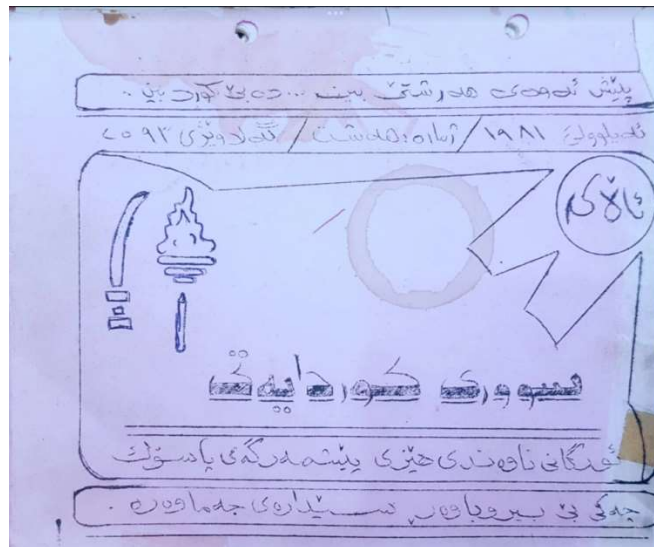 پێش ئەوەی هەرشتێ بین ... دەبێ کورد بین ..
ئەیلوولی ١٩٨١ / ژمارە: هەشت / گەلاوێژی ٢٥٩٣
ئاڵای
سووری کوردایەتی
ئۆرگانی ناوەندی هێزی پێشمەرگەی پاسۆک
چەکی بێ بیروباوەڕ سێدارەی جەماوەرە .